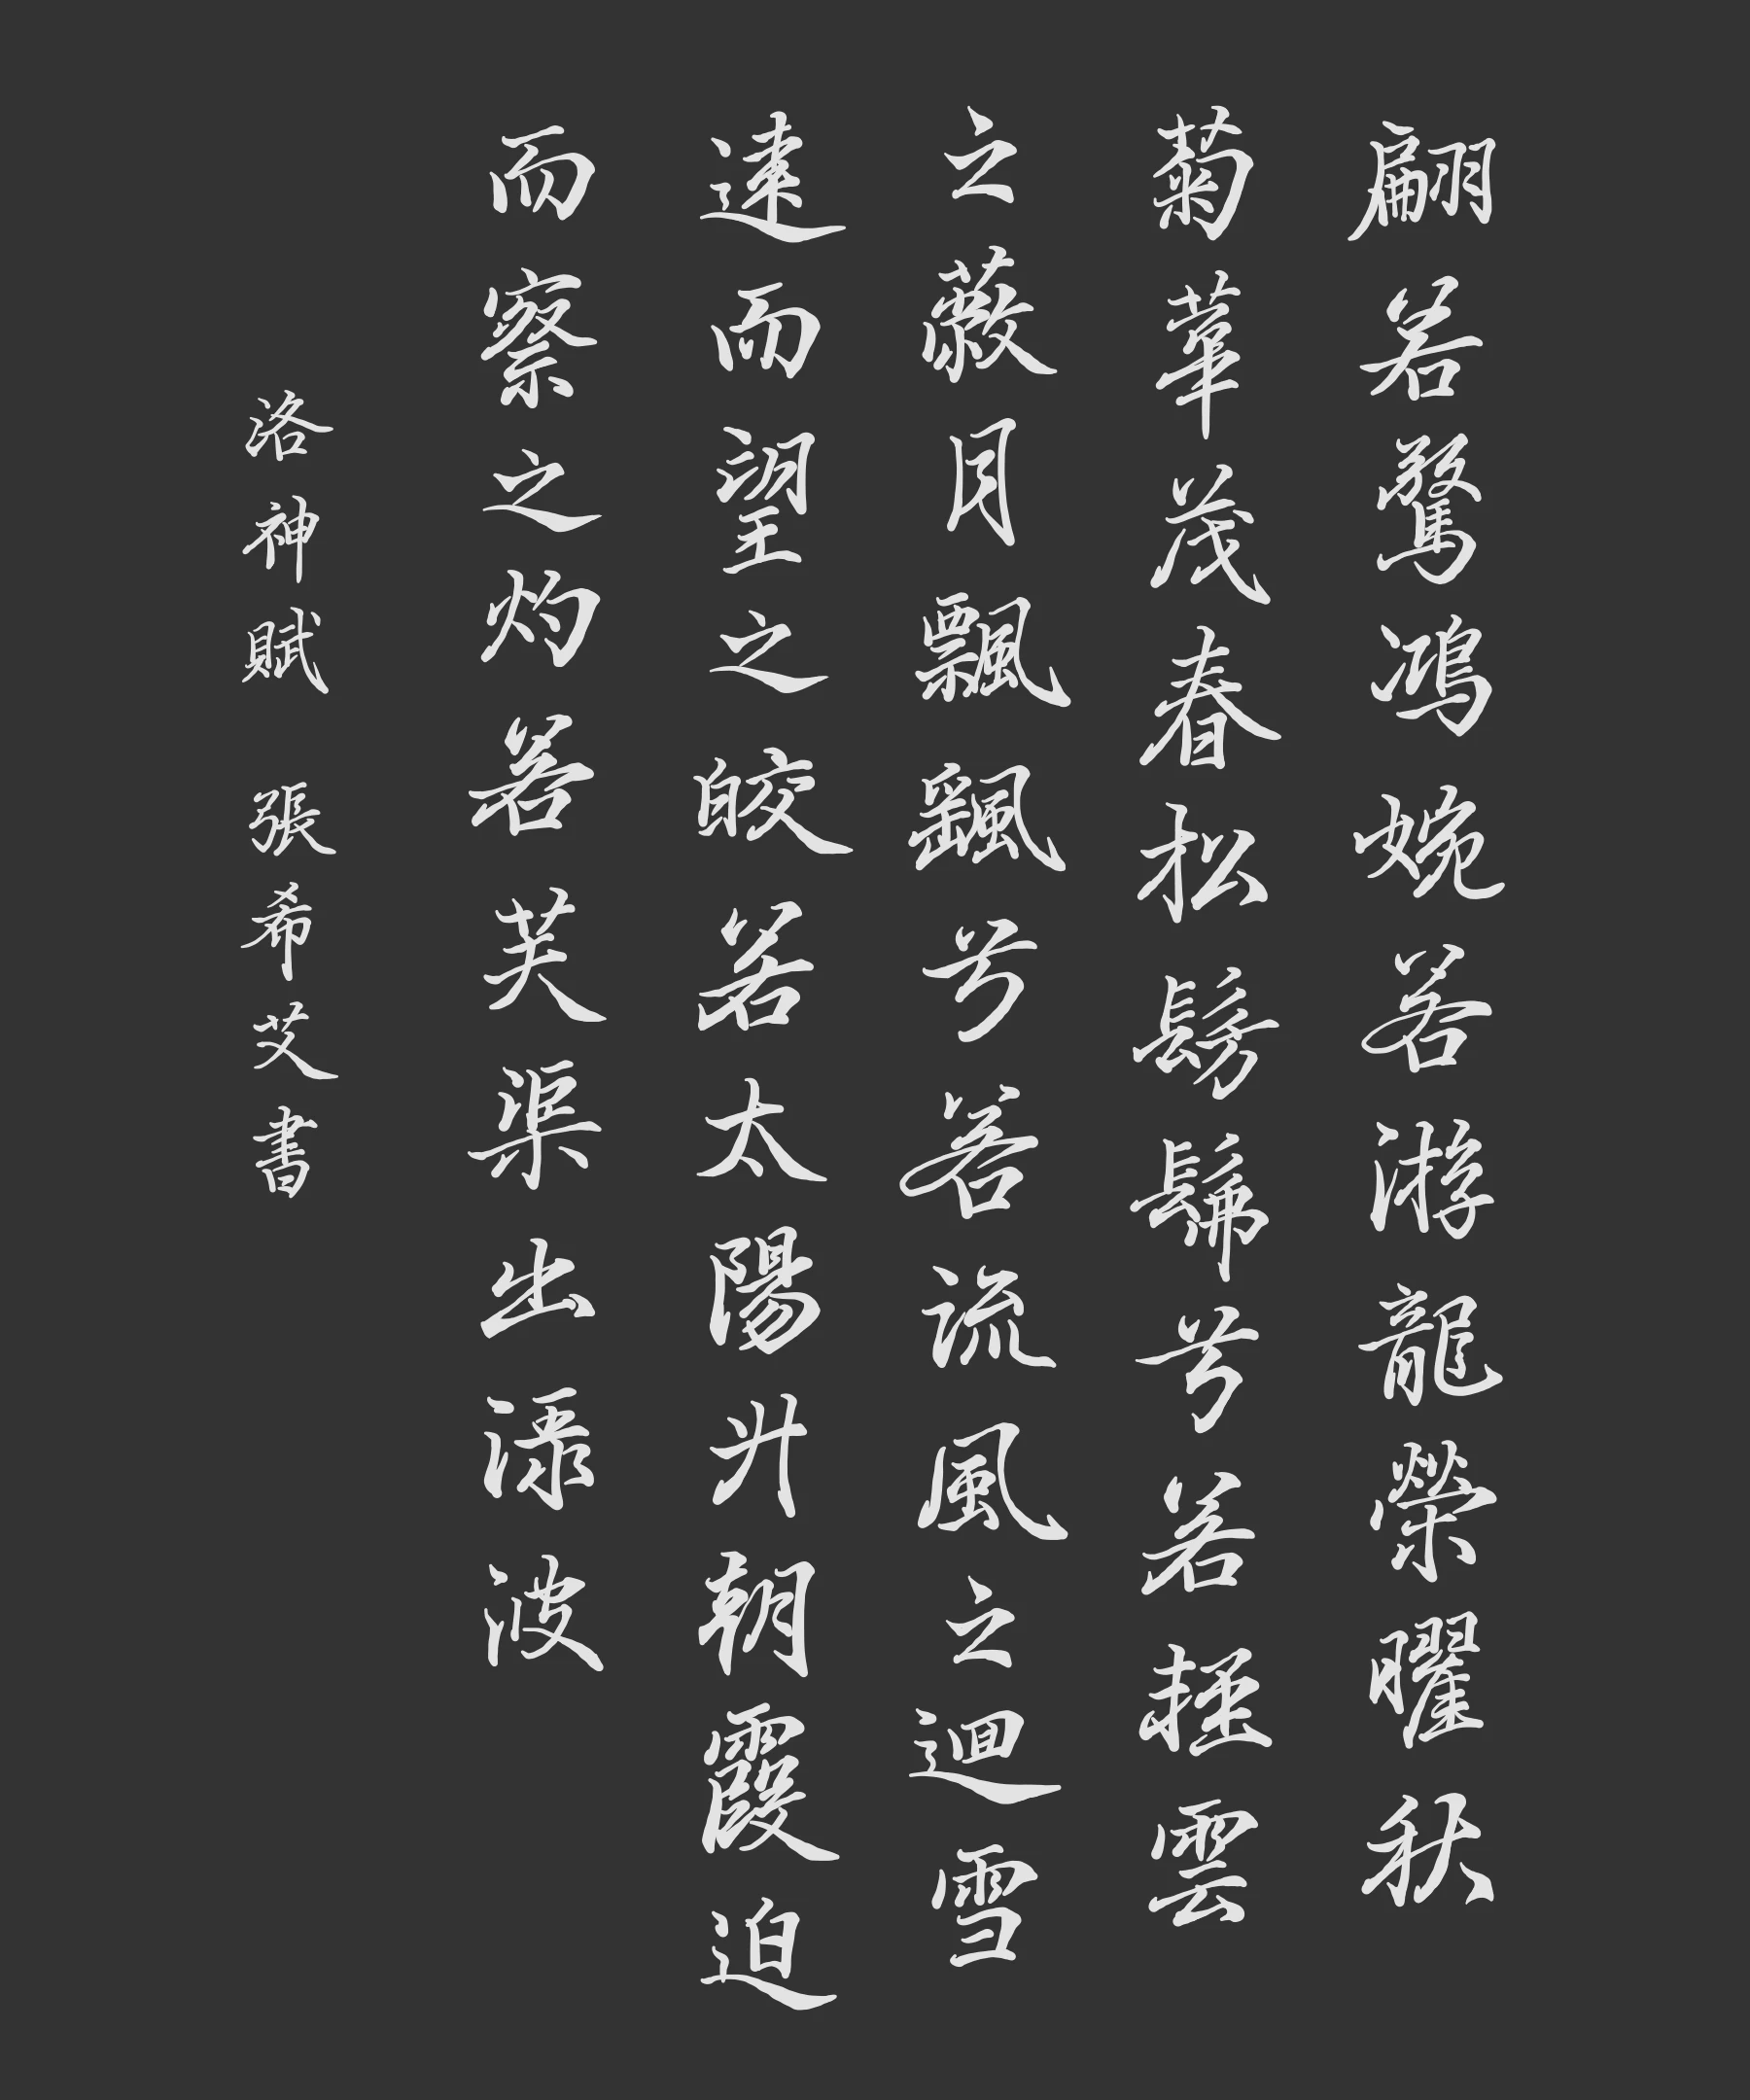 翩若驚鴻婉若游龍榮曜秋
菊華茂春松髣髴兮若輕雲
之蔽月飄颻兮若流風之迴雪
遠而望之皎若太陽升朝霞迫
而察之灼若芙渠出淥波
洛神賦 張希文書